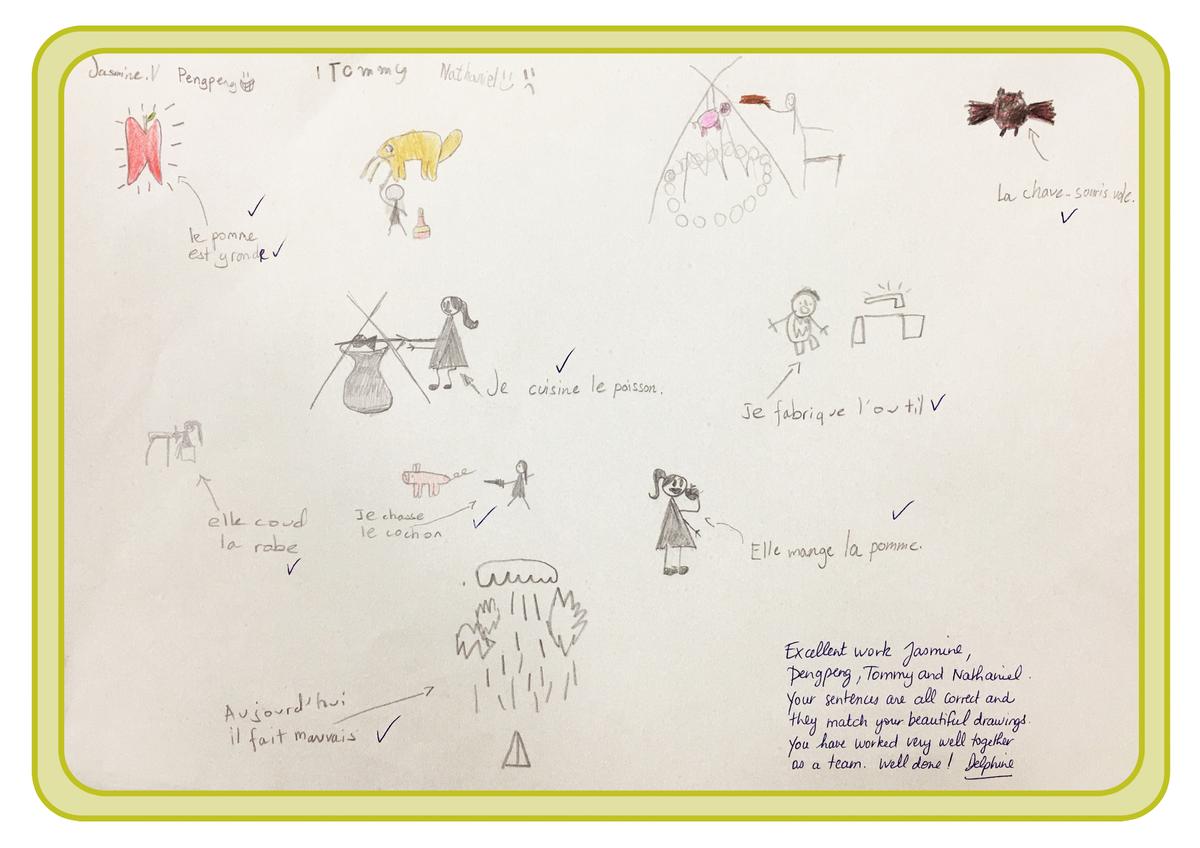 Jasmine.V Pengpeng Tommy Nathaniel
le pomme
est grande
La chave-souris vole.
Je cuisine le poisson.
Je fabrique l'outil
elle coud
la robe
Je chasse
le cochon
Elle mange la pomme.
Aujourd'hui
il fait mauvais
Excellent work Jasmine,
Pengpeng, Tommy and Nathaniel.
Your sentences are all correct and
they match your beautiful drawings.
You have worked very well together
as a team. Well done! Delphine